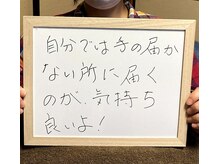 自分では手の届か
ない所に届く
のが、気持ち
良いよ!